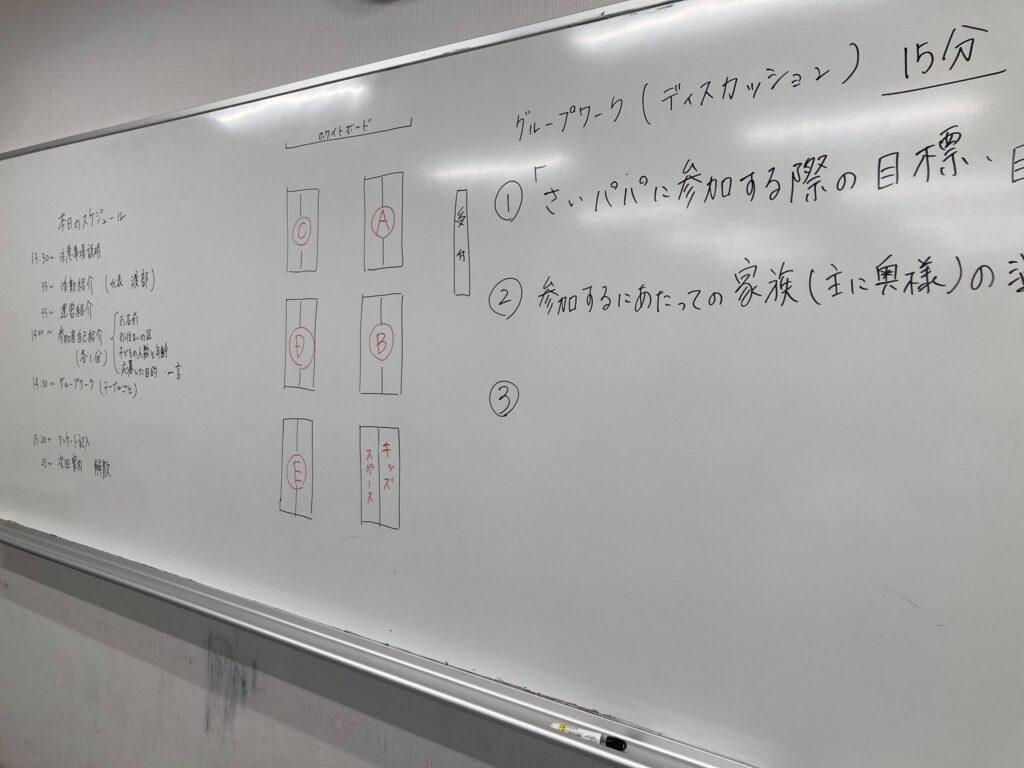 本日のスケジュール
13:30~ 注意事項説明
35~ 活動紹介 (代表 渡部)
45~ 運営紹介
14:00~ 参加者自己紹介
(各1分)
お名前
お住まいの区
子どもの人数と年齢
応募した目的 一言
14:30~ グループワーク (テーブルごと)
15:20~ アンケート記入
25~ 次回案内 解散
ホワイトボード
C
A
D
B
E
キッズ
スペース
受付
グループワーク (ディスカッション) 15分
① 「さいパパに参加する際の目標、
② 参加するにあたっての家族(主に奥様)の
③